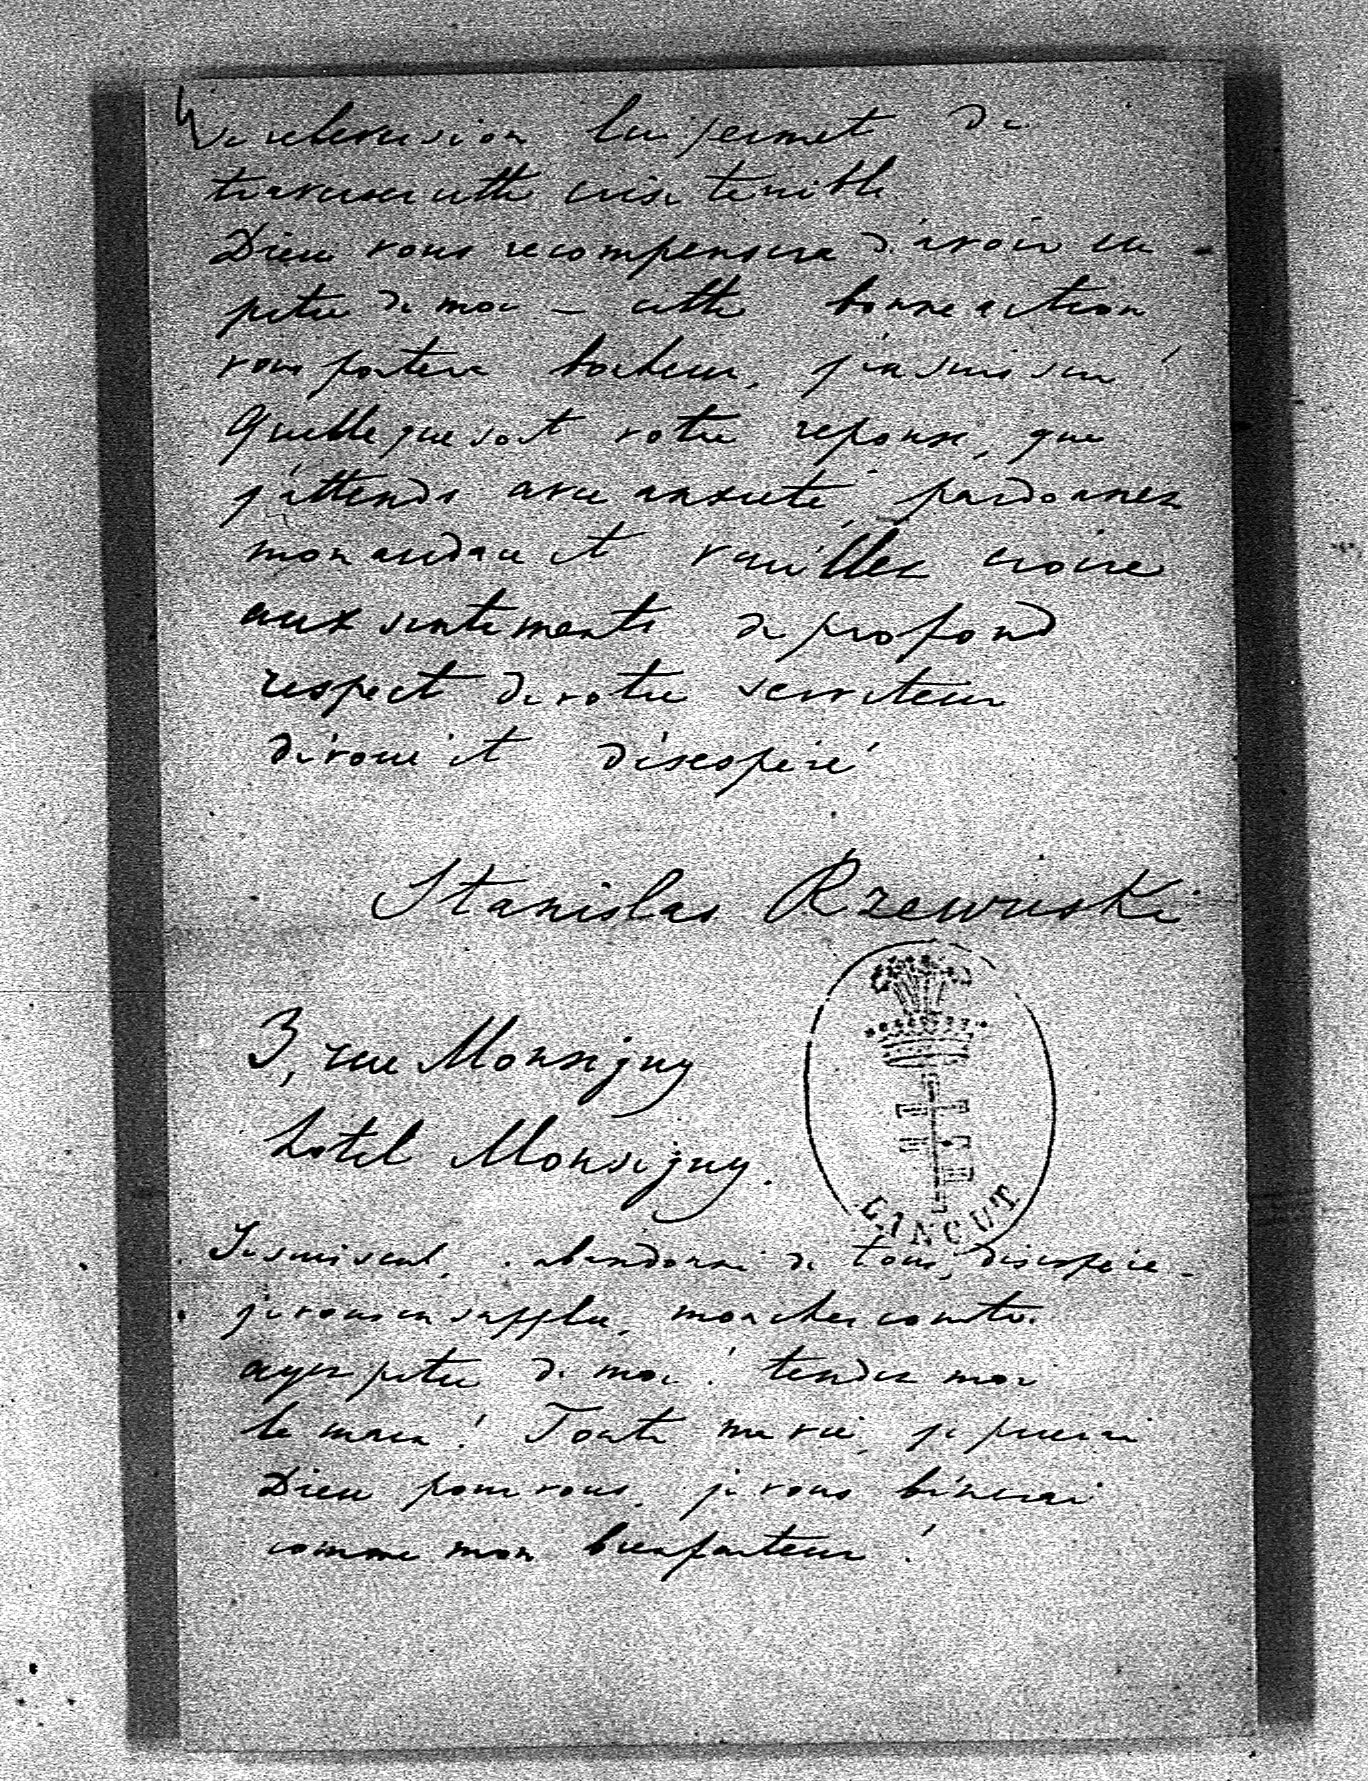 lui permet de
traverser cette crise terrible
Dieu vous recompensera d'avoir eu
pitié de moi – cette bonne action
vous portera bonheur, j'en suis sûr
Quelle que soit votre reponse, que
j'attends avec anxieté, pardonnez
mon audace et veuillez croire
aux sentiments de profond
respect de votre serviteur
dévoué et désespéré
Stanislas Rzewuski
3, rue Monsigny
hotel Monsigny.
ŁAŃCUT
Je suis seul, abandonné de tous, désespéré –
je vous en supplie, mon cher comte.
ayez pitié de moi! tendez moi
la main! Toute ma vie, je prierai
Dieu pour vous, je vous bénirai
comme mon bienfaiteur!